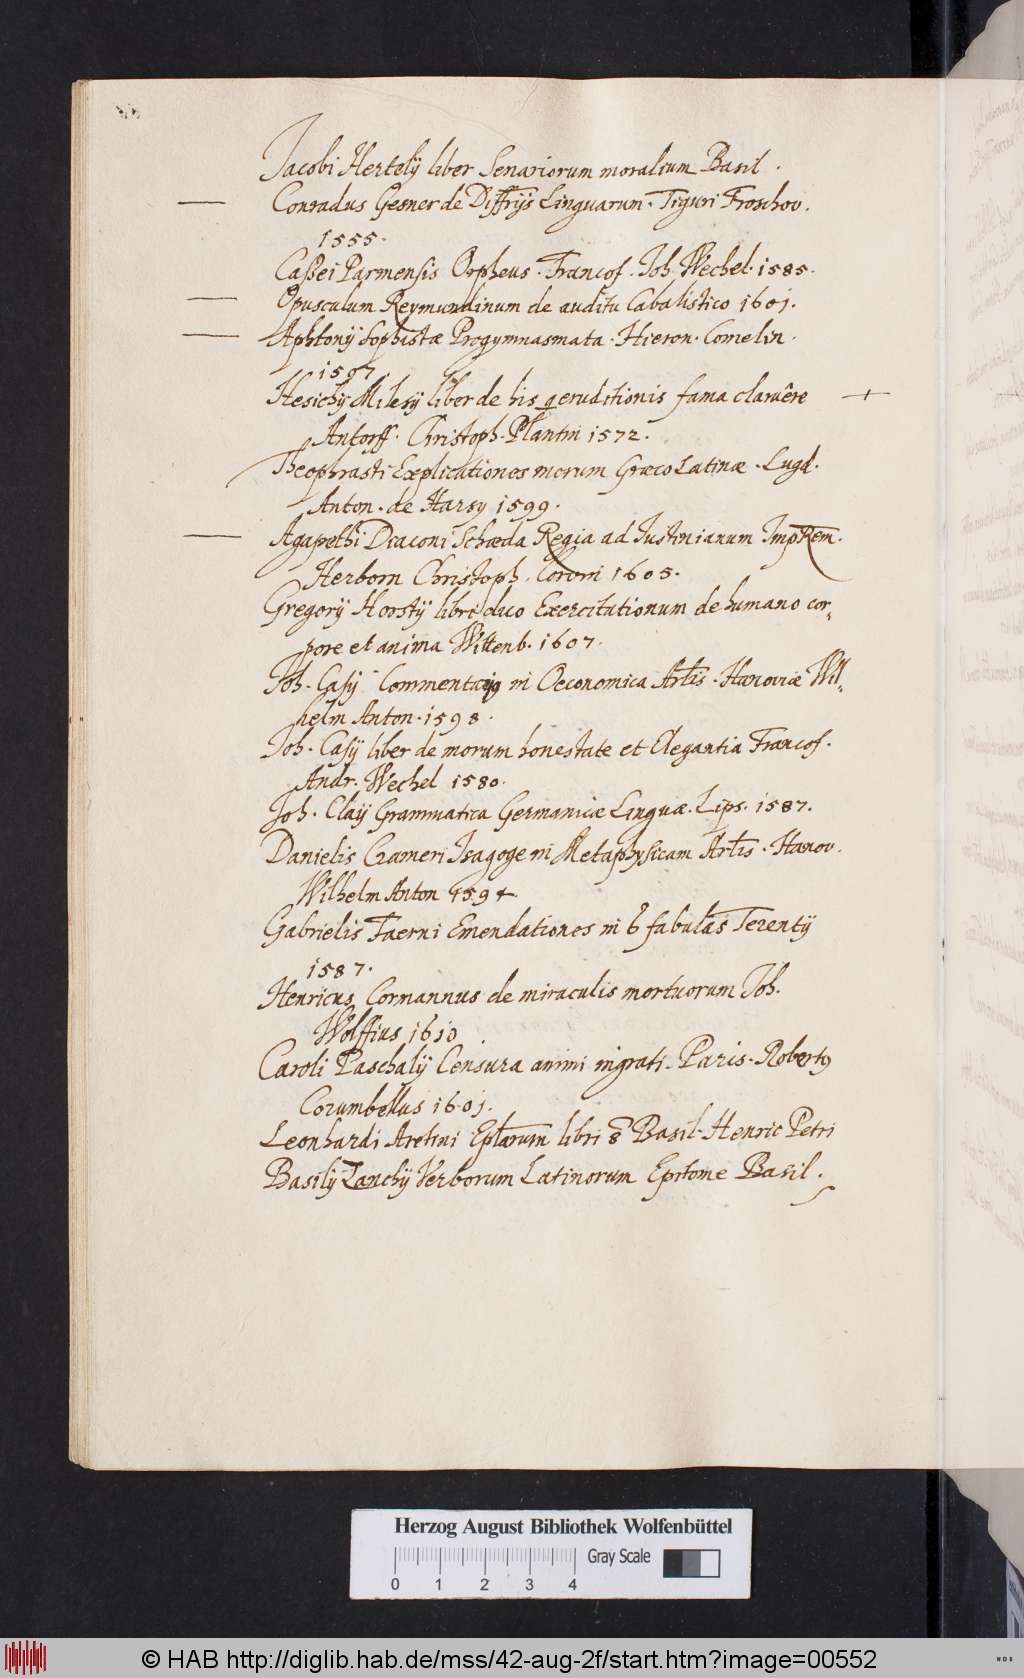 Jacobi Hertelij liber Senariorum moralium Basil.
Conradus Gesner de Diffrijs Linguarum. Tiguri Froschov.
1555.
Caßei Parmensis Orpheus. Francof. Joh. Wechel. 1585.
Opusculum Reymundinum de auditu Cabalistico 1601.
Aphtonij Sophistæ Progymnasmata. Hieron. Comelin.
1597
Hesichij Milesij liber de his q eruditionis fama claruêre
Antorff. Christoph. Plantin 1572.
Theophrasti Explicationes morum Græco Latinæ. Lugd.
Anton. de Harsy 1599.
Agapethi Diaconi Schæda Regia ad Justinianum ImpRem.
Herborn Christoph. Corvin 1605.
Gregorij Horstij libri duo Exercitationum de humano cor-
pore et anima Wittenb. 1607.
Joh. Casij Commentarijs in Oeconomica Artis. Hanoviæ Wil-
helm Anton. 1598.
Joh. Casij liber de morum honestate et Elegantia Francof.
Andr. Wechel 1580.
Joh. Claij Grammatica Germanicæ Linguæ. Lips. 1587.
Danielis Crameri Isagoge in Metaphysicam Artis. Hanov.
Wilhelm Anton 1594.
Gabrielis Faerni Emendationes in 6 fabulas Terentij
1587.
Henricus Cormannus de miraculis mortuorum Joh.
Wolffius 1610
Caroli Paschalij Censura animi ingrati. Paris. Robertus
Corumbellus 1601.
Leonhardi Aretini Eplarum libri 8 Basil. Henric Petri
Basilij Zanchij Verborum Latinorum Epitome Basil.
Herzog August Bibliothek Wolfenbüttel
Gray Scale
0 1 2 3 4
© HAB http://diglib.hab.de/mss/42-aug-2f/start.htm?image=00552